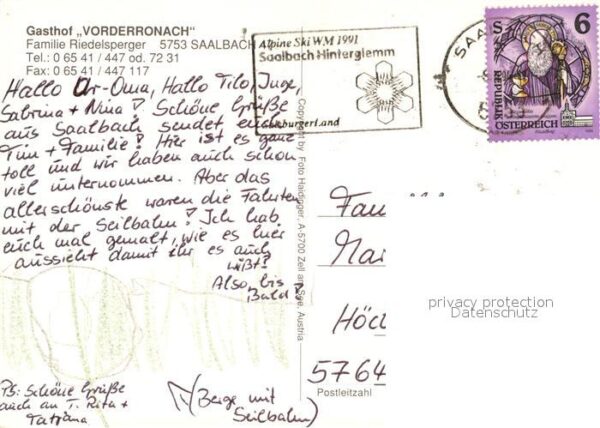 Gasthof „VORDERRONACH“
Familie Riedelsperger 5753 SAALBACH
Tel.: 0 65 41 / 447 od. 72 31
Fax: 0 65 41 / 447 117
Alpine Ski WM 1991
Saalbach Hinterglemm
SalzburgerLand
SAA
S 6
REPUBLIK
ÖSTERREICH
Hallo Ur-Oma, Hallo Tilo, Inge,
Sabrina + Nina! Schöne Grüße
aus Saalbach sendet euch
Tim + Familie! Hier ist es ganz
toll und wir haben auch schon
viel unternommen. Aber das
allerschönste waren die Fahrten
mit der Seilbahn! Ich hab
euch mal gemalt, wie es hier
aussieht damit ihr es auch
wißt!
Also, bis
Bald!
PS: Schöne Grüße
auch an T. Rita +
Tatjana
(Berge mit
Seilbahn)
Copyright by Foto Haidinger, A-5700 Zell am See, Austria
Fam
Mai
Höc
5764
Postleitzahl
privacy protection
Datenschutz